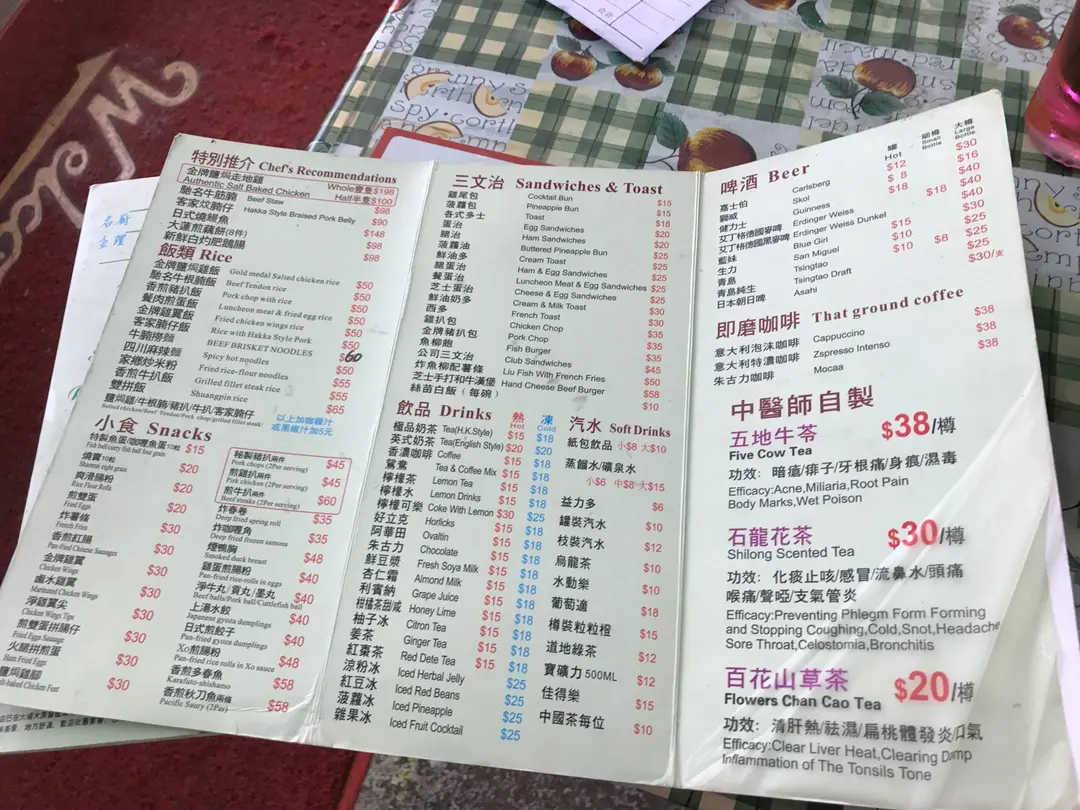 特別推介 Chef's Recommendations
金牌鹽焗走地雞 Whole壹隻$198
Authentic Salt Baked Chicken Half半隻$100
馳名牛筋腩 Beef Staw $98
客家炆腩仔 Hakka Style Braised Pork Belly $90
日式燒鰻魚 $148
大蓮煎藕餅(8件) $98
新鮮白灼肥鵝腸 $98
飯類 Rice
金牌鹽焗雞飯 Gold medal Salted chicken rice $50
馳名牛根腩飯 Beef Tendon rice $50
香煎豬扒飯 Pork chop with rice $50
餐肉煎蛋飯 Luncheon meat & fried egg rice $50
金牌雞翼飯 Fried chicken wings rice $50
客家腩仔飯 Rice with Hakka Style Pork $50
牛腩撈麵 BEEF BRISKET NOODLES 60
四川麻辣麵 Spicy hot noodles $50
家鄉炒米粉 Fried rice-flour noodles $50
香煎牛扒飯 Grilled fillet steak rice $55
雙拼飯 Shuangpin rice $65
鹽焗雞/牛根腩/豬扒/牛扒/客家腩仔
Salted chicken/Beef Tendon/Pork chop/grilled fillet steak/
以上加咖喱汁
或黑椒汁加5元
小食 Snacks
特製魚蛋/咖喱魚蛋10粒 $15
Fish ball/curry fish ball four grain
燒賣10粒 $20
Shaomai eight grain
爽滑腸粉 $20
Rice Flour Rolls
煎雙蛋 $20
Fried Eggs
炸薯條 $30
French Fries
香煎紅腸 $30
Pan-fried Chinese Sausages
金牌雞翼 $30
Chicken Wings
鹵水雞翼 $30
Marinated Chicken Wings
淨雞翼尖 $30
Chicken Wings Tips
煎雙蛋拼腸仔 $30
Fried Eggs Sausage
火腿拼煎蛋 $30
Ham Fried Eggs
鹽焗雞腳 $30
Chicken Feet
秘製豬扒兩件 $45
Pork chops (2Per serving)
煎雞扒兩件 $45
Pork chicken (2Per serving)
煎牛扒兩件 $60
Beef steaks (2Per serving)
炸春卷 $35
Deep fried spring roll
炸咖喱角 $35
Deep fried frozen samosa
煙鴨胸 $48
Smoked duck breast
雞蛋煎腸粉 $40
Pan-fried rice-rolls in eggs
淨牛丸/貢丸/墨丸 $40
Beef balls/Pork ball/Cuttlefish ball
上湯水餃 $40
Japanese gyoza dumplings
日式煎餃子 $40
Pan-fried gyoza dumplings
Xo煎腸粉 $48
Pan-fried rice rolls in Xo sauce
香煎多春魚 $58
Karafuto-shishamo
香煎秋刀魚兩條 $58
Pacific Saury (2Per)
三文治 Sandwiches & Toast
雞尾包 Cocktail Bun $15
菠蘿包 Pineapple Bun $15
各式多士 Toast $18
蛋治 Egg Sandwiches $20
腿治 Ham Sandwiches $20
菠蘿油 Buttered Pineapple Bun $25
鮮油多 Cream Toast $25
腿蛋治 Ham & Egg Sandwiches $25
餐蛋治 Luncheon Meat & Egg Sandwiches $25
芝士蛋治 Cheese & Egg Sandwiches $25
鮮油奶多 Cream & Milk Toast $30
西多 French Toast $30
雞扒包 Chicken Chop $35
金牌豬扒包 Pork Chop $35
魚柳飽 Fish Burger $35
公司三文治 Club Sandwiches $45
炸魚柳配薯條 Liu Fish With French Fries $50
芝士手打和牛漢堡 Hand Cheese Beef Burger $58
絲苗白飯(每碗) $10
飲品 Drinks 熱 Hot 凍 Cold
極品奶茶 Tea(H.K.Style) $15 $18
英式奶茶 Tea(English Style) $20 $20
香濃咖啡 Coffee $15 $18
鴛鴦 Tea & Coffee Mix $15 $18
檸檬茶 Lemon Tea $15 $18
檸檬水 Lemon Drinks $15 $18
檸檬可樂 Coke With Lemon $30 $25
好立克 Horlicks $15 $18
阿華田 Ovaltin $15 $18
朱古力 Chocolate $15 $18
鮮豆漿 Fresh Soya Milk $15 $18
杏仁霜 Almond Milk $15 $18
利賓納 Grape Juice $15 $18
柑橘茶甜咸 Honey Lime $15 $18
柚子冰 Citron Tea $15 $18
姜茶 Ginger Tea $15 $18
紅棗茶 Red Dete Tea $15 $18
涼粉冰 Iced Herbal Jelly $25
紅豆冰 Iced Red Beans $25
菠蘿冰 Iced Pineapple $25
雜果冰 Iced Fruit Cocktail $25
汽水 Soft Drinks
紙包飲品 小$8 大$10
蒸餾水/礦泉水
小$6 中$8 大$15
益力多 $6
罐裝汽水 $10
枝裝汽水 $12
烏龍茶 $10
水動樂 $10
葡萄適 $18
樽裝粒粒橙 $15
道地綠茶 $12
寶礦力 500ML $12
佳得樂 $15
中國茶每位 $10
啤酒 Beer 罐 Hot 細樽 Small Bottle 大樽 Large Bottle
嘉士伯 Carlsberg $12 $30
獅威 Skol $ 8 $16
健力士 Guinness $18 $40
艾丁格德國麥啤 Erdinger Weiss $18 $40
艾丁格德國黑麥啤 Erdinger Weiss Dunkel $40
藍妹 Blue Girl $15 $25
生力 San Miguel $10 $25
青島 Tsingtao $10 $8 $25
青島純生 Tsingtao Draft $25
日本朝日啤 Asahi $30/支
即磨咖啡 That ground coffee
意大利泡沫咖啡 Cappuccino $38
意大利特濃咖啡 Zspresso Intenso $38
朱古力咖啡 Mocaa $38
中醫師自製
五地牛苓 $38/樽
Five Cow Tea
功效: 暗瘡/痱子/牙根痛/身痕/濕毒
Efficacy:Acne,Miliaria,Root Pain
Body Marks,Wet Poison
石龍花茶 $30/樽
Shilong Scented Tea
功效: 化痰止咳/感冒/流鼻水/頭痛
喉痛/聲啞/支氣管炎
Efficacy:Preventing Phlegm Form Forming
and Stopping Coughing,Cold,Snot,Headache
Sore Throat,Celostomia,Bronchitis
百花山草茶 $20/樽
Flowers Chan Cao Tea
功效: 清肝熱/祛濕/扁桃體發炎/口氣
Efficacy:Clear Liver Heat,Clearing Damp
Inflammation of The Tonsils Tone